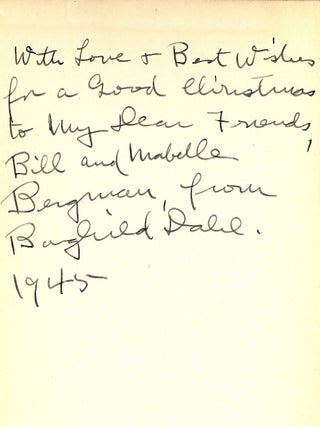 With Love & Best Wishes
for a Good Christmas
to My Dear Friends,
Bill and Mabelle
Bergman, from
Borghild Dahl.
1945